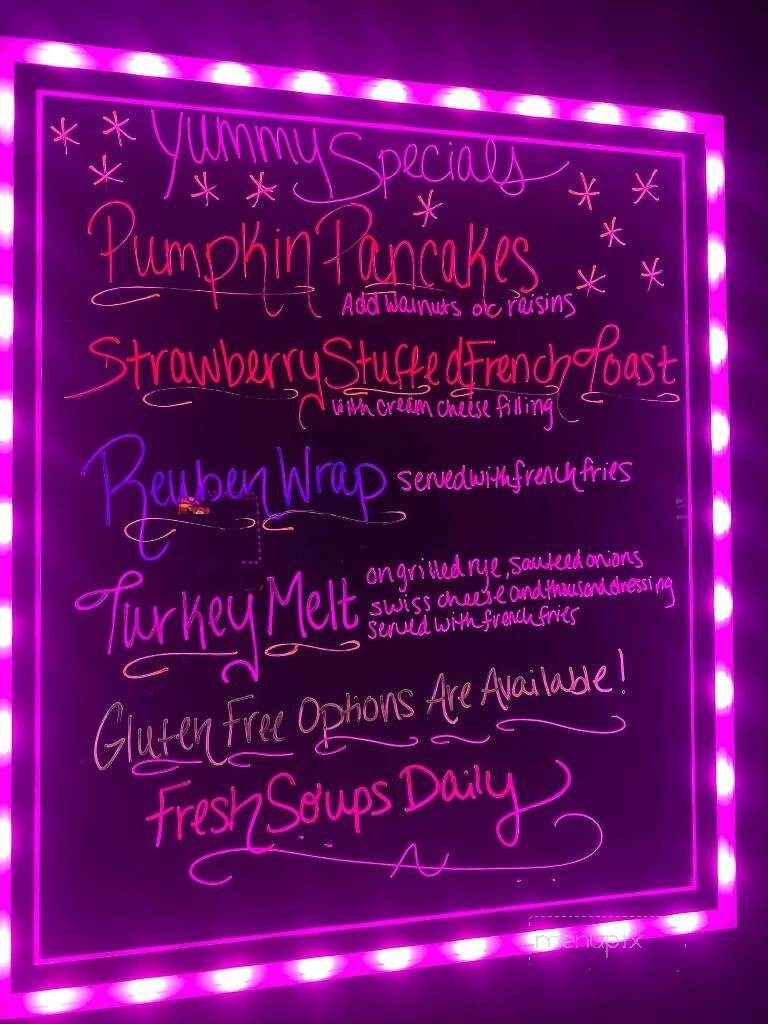 Yummy Specials
Pumpkin Pancakes
Add walnuts or raisins
Strawberry Stuffed French Toast
with cream cheese filling
Reuben Wrap served with french fries
Turkey Melt on grilled rye, sauteed onions
swiss cheese and thousand dressing
served with french fries
Gluten Free Options Are Available!
Fresh Soups Daily
menupix